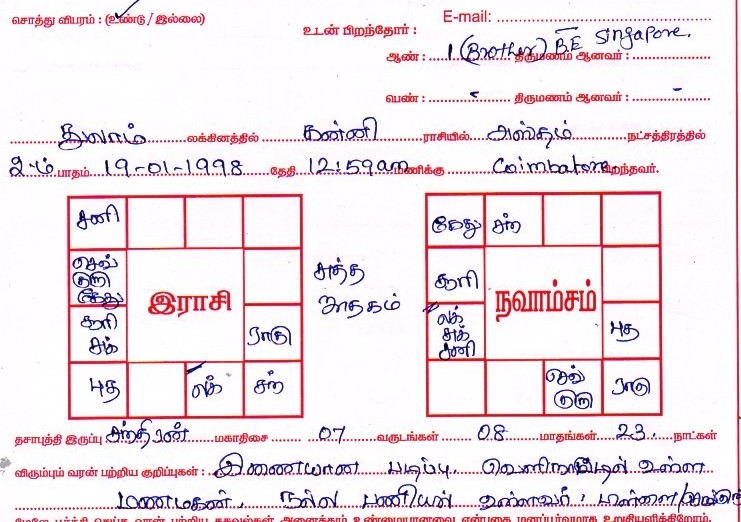 சொத்து விபரம் : (உண்டு / இல்லை)
E-mail:
உடன் பிறந்தோர் :
ஆண் : 1 (Brother) B.E Singapore. திருமணம் ஆனவர் :
பெண் : - திருமணம் ஆனவர் : -
துலாம் லக்கினத்தில் கன்னி ராசியில் அஸ்தம் நட்சத்திரத்தில்
2-ம் பாதம் 19-01-1998 தேதி 12:59am மணிக்கு Coimbatore பிறந்தவர்.
சனி
செவ்
குரு
கேது
சுக்
ராகு
புத
லக்
சந்
இராசி
சுத்த
ஜாதகம்
கேது சந்
லக்
சுக்
சனி
புத
செவ்
குரு
ராகு
நவாம்சம்
தசாபுத்தி இருப்பு சந்திரன் மகாதிசை 07 வருடங்கள் 08 மாதங்கள் 23 நாட்கள்
விரும்பும் வரன் பற்றிய குறிப்புகள் : இணையான படிப்பு. வெளிநாட்டில் உள்ள
மணமகன். நல்ல பணியில் உள்ளவர்.